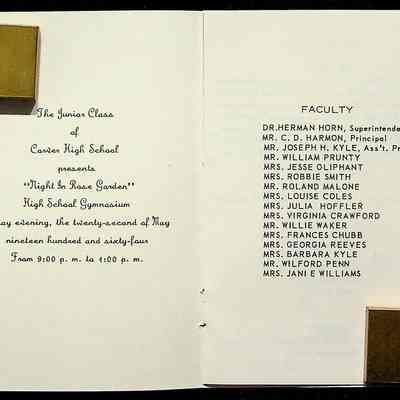 The Junior Class
of
Carver High School
presents
"Night In Rose Garden"
High School Gymnasium
ay evening, the twenty-second of May
nineteen hundred and sixty-four
From 9:00 p. m. to 1:00 p. m.
FACULTY
DR. HERMAN HORN, Superintende
MR. C. D. HARMON, Principal
MR. JOSEPH H. KYLE, Ass't. Pr
MR. WILLIAM PRUNTY
MRS. JESSE OLIPHANT
MRS. ROBBIE SMITH
MR. ROLAND MALONE
MRS, LOUISE COLES
MRS. JULIA HOFFLER
MRS. VIRGINIA CRAWFORD
MR. WILLIE WAKER
MRS. FRANCES CHUBB
MRS. GEORGIA REEVES
MRS. BARBARA KYLE
MR. WILFORD PENN
MRS. JANI E WILLIAMS